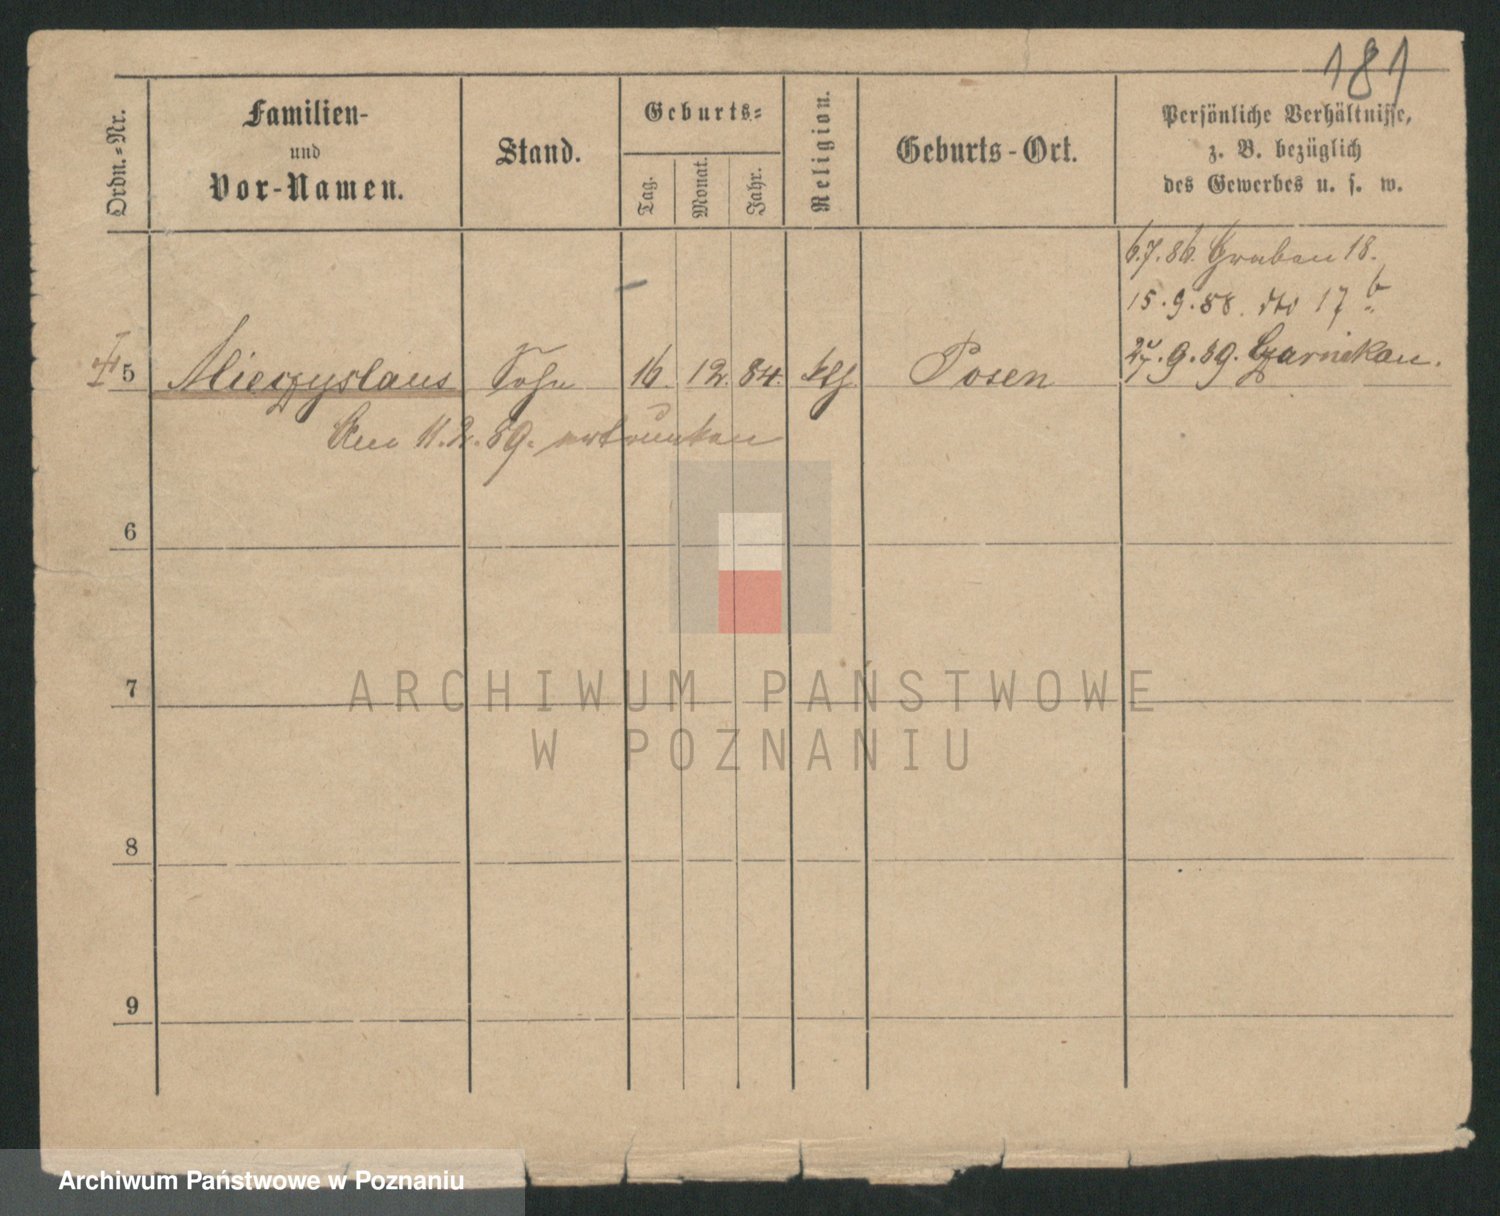 181
Ordn.-Nr.
Familien-
und
Vor-Namen.
Stand.
Geburts-
Tag.
Monat.
Jahr.
Religion.
Geburts-Ort.
Persönliche Verhältnisse,
z. B. bezüglich
des Gewerbes u. s. w.
6.7.86. Graben 18.
15.9.88. dto 17 b
27.9.89. Czarnikau.
5 Mieczyslaus Sohn 16. 12. 84. kth Posen
Am 11.2.89. ertrunken
6
7
8
9
ARCHIWUM PAŃSTWOWE
W POZNANIU
Archiwum Państwowe w Poznaniu